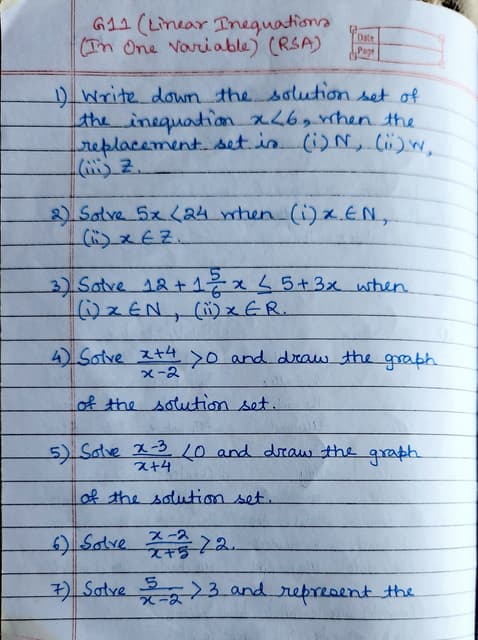 G11 (Linear Inequations
(In One Variable) (RSA)
Date
Page
1) Write down the solution set of
the inequation x<6, when the
replacement set is (i) N, (ii) W,
(iii) Z.
2) Solve 5x <24 when (i) x ∈ N,
(ii) x ∈ Z.
3) Solve 12 + 1 5/6 x ≤ 5+3x when
(i) x ∈ N, (ii) x ∈ R.
4) Solve x+4/x-2 >0 and draw the graph
of the solution set.
5) Solve x-3/x+4 <0 and draw the graph
of the solution set.
6) Solve x-2/x+5 >2.
7) Solve 5/x-2 >3 and represent the